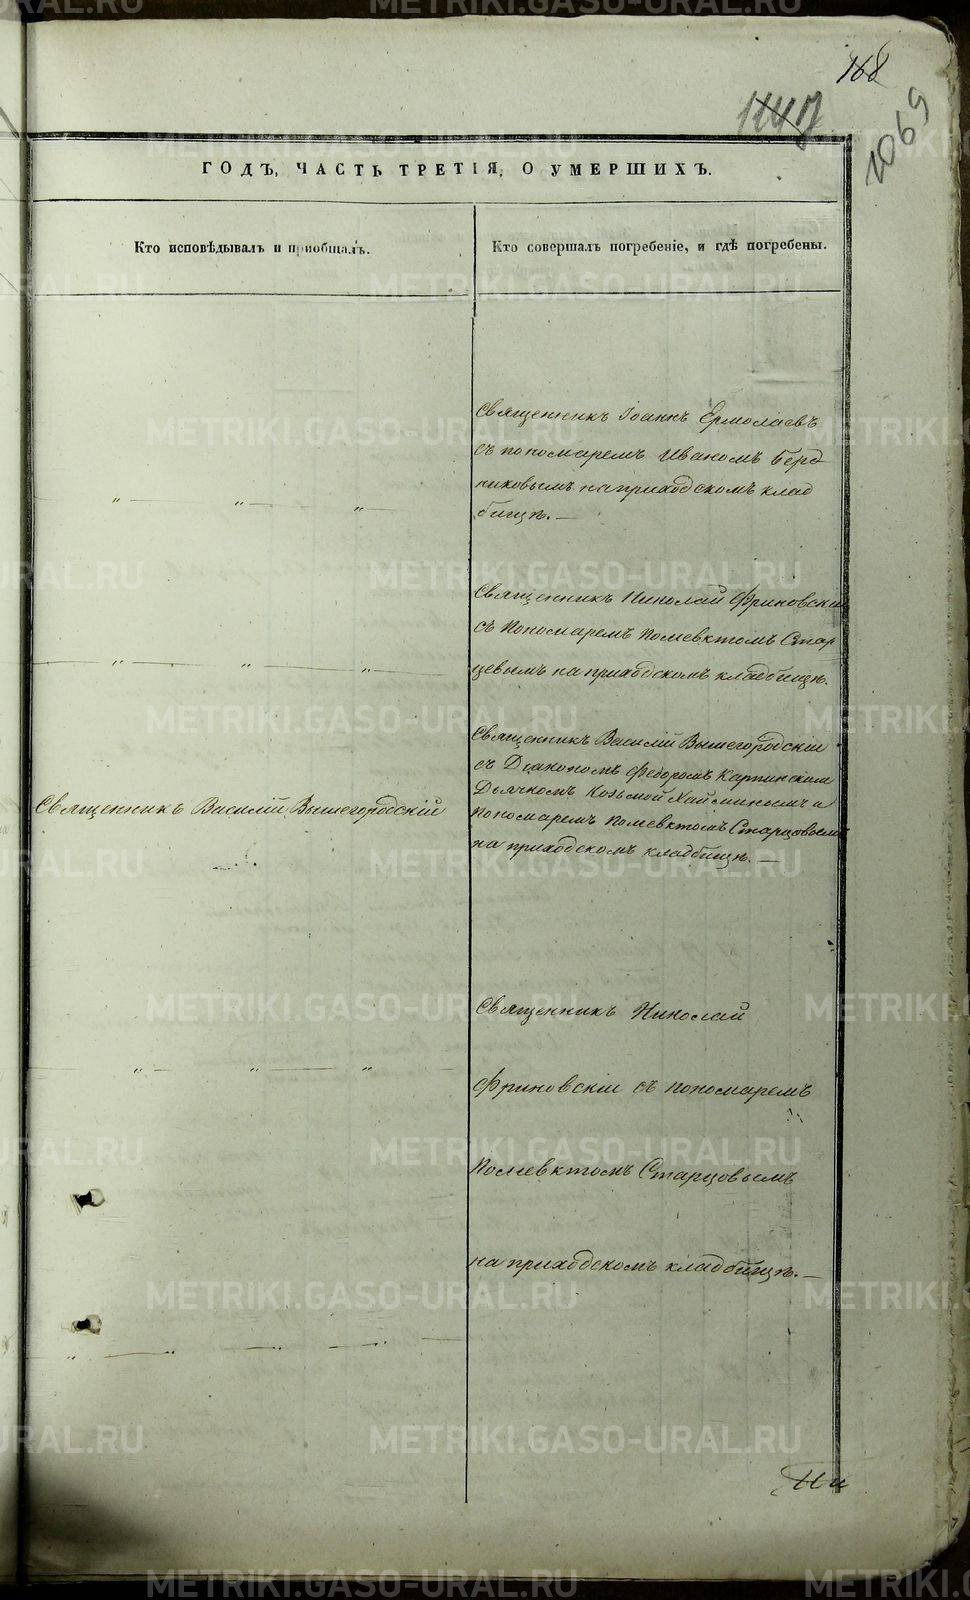 168
1069
ГОДЪ, ЧАСТЬ ТРЕТІЯ, О УМЕРШИХЪ.
Кто исповѣдывалъ и пріобщалъ.
Кто совершалъ погребеніе, и гдѣ погребены.
Священникъ Іоаннъ Ермолаевъ
съ пономаремъ Иваномъ Берд
никовымъ на приходскомъ клад
бищѣ. —
" — " — " —
Священникъ Николай Фриновскій
съ Пономаремъ Полиевктомъ Стар
цевымъ на приходскомъ кладбищѣ.
— " — " — " —
Священникъ Василій Вышегородскій
съ Діакономъ Федоромъ Карпинскимъ
Дьячкомъ Козьмой и
Пономаремъ Полиевктомъ Старцовымъ
на приходскомъ кладбищѣ. —
Священникъ Василій Вышегородскій
Священникъ Николай
Фриновскій съ пономаремъ
— " — " — " —
Полиевктомъ Старцовымъ
на приходскомъ кладбищѣ. —
— " — " — " —
METRIKI.GASO-URAL.RU